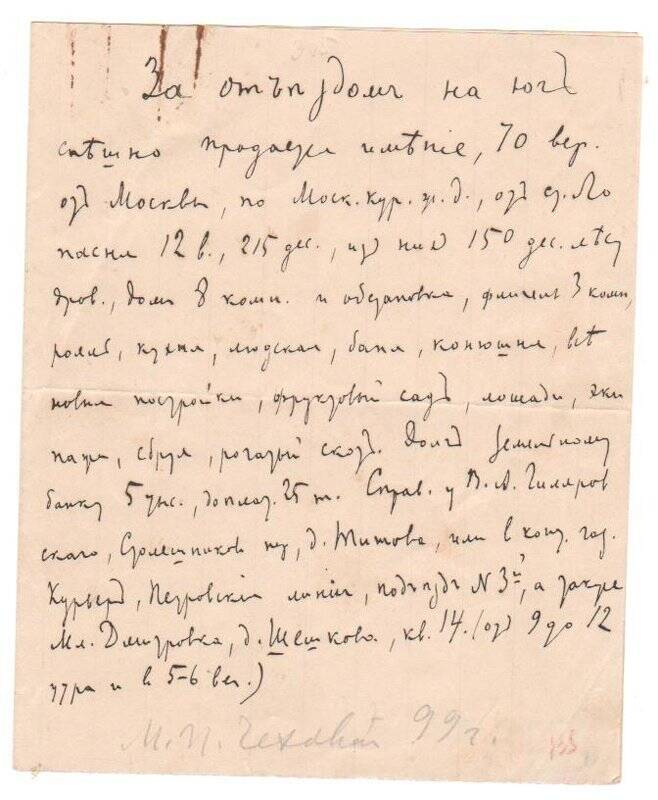 За отъѣздомъ на югъ
спѣшно продается имѣніе, 70 вер.
отъ Москвы, по Моск. кур. ж. д., отъ ст. Ло
пасня 12 в., 215 дес., изъ них 150 дес. лѣсу
дров., домъ 8 комн. и обстановка, флигель 3 комн,
рояль, кухня, людская, баня, конюшня, всѣ
новыя постройки, фруктовый садъ, лошади, эки
пажи, сбруя, рогатый скотъ. Долгъ земельному
банку 5 тыс., доплат. 25 т. Справ. у В. А. Гиляров
скаго, Столешников пер, д. Титова, или в конт. газ.
Курьеръ, Петровскія линіи, подъѣздъ N 3й, а также
Мл. Дмитровка, д. Шешкова, кв. 14. (отъ 9 до 12
утра и в 5–6 веч.)
М. П. Чеховой 99 г.